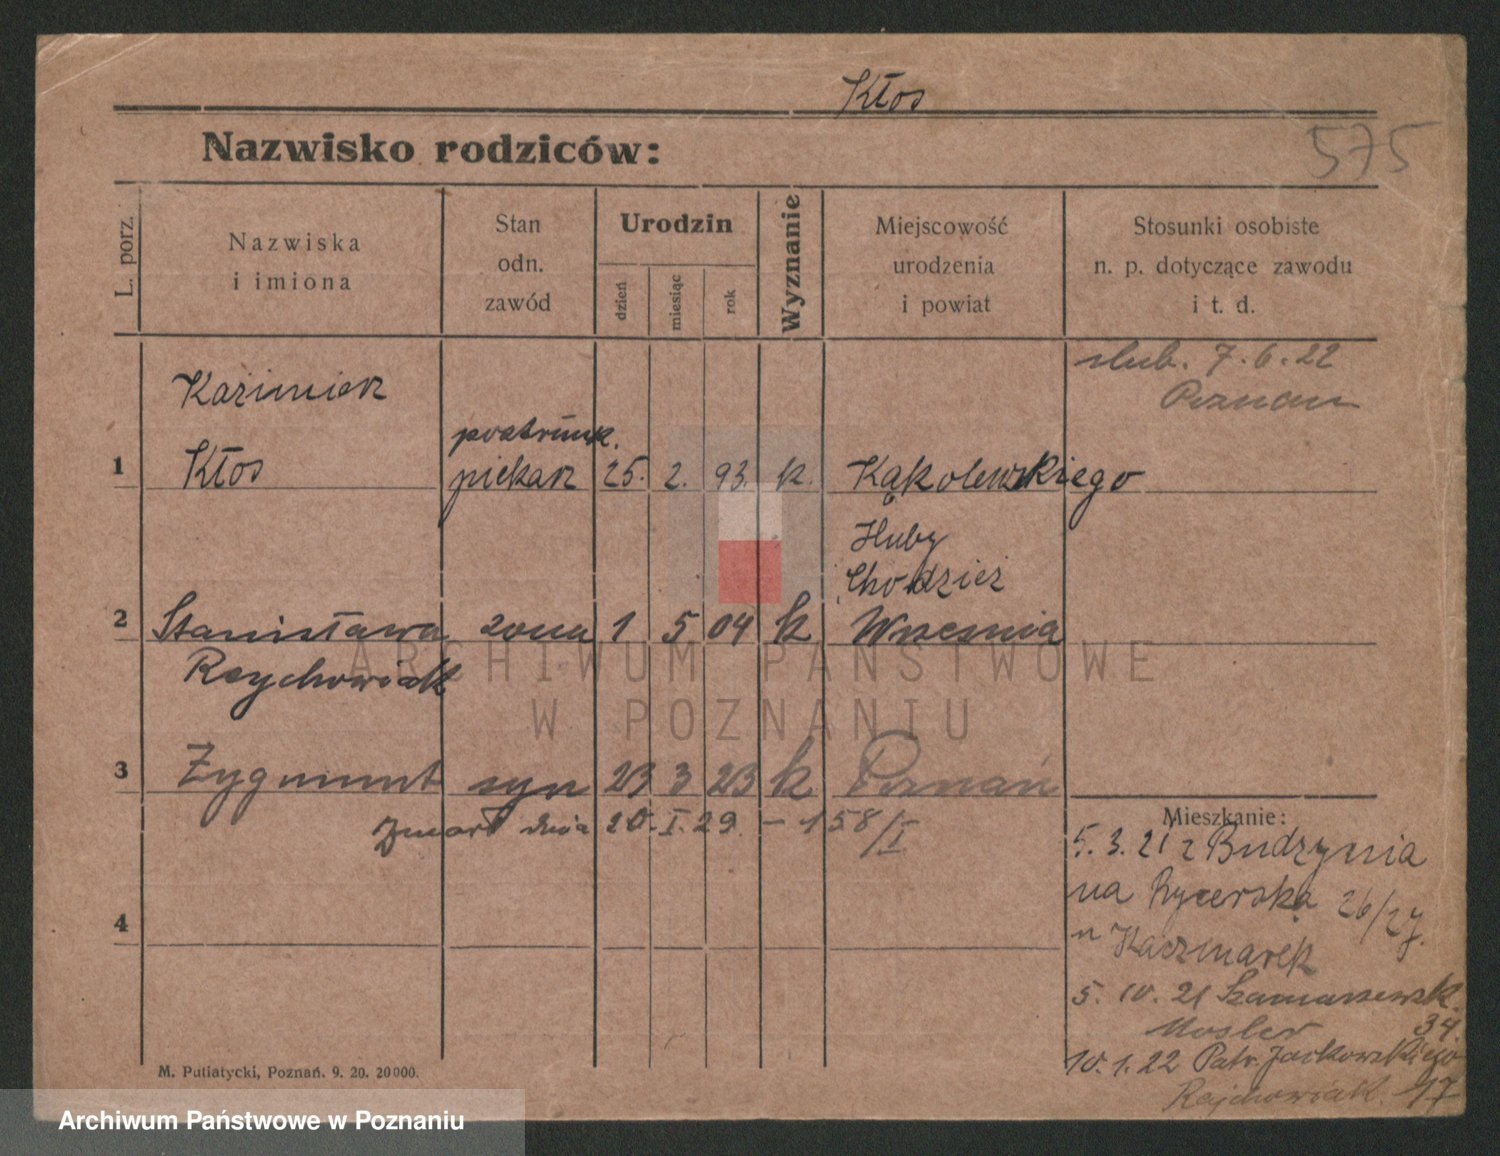 Kłos
Nazwisko rodziców:
575
L. porz.
Nazwiska
i imiona
Stan
odn.
zawód
Urodzin
dzień
miesiąc
rok
Wyznanie
Miejscowość
urodzenia
i powiat
Stosunki osobiste
n. p. dotyczące zawodu
i t. d.
ślub. 7.6.22
Poznań
1
Kazimierz
Kłos
piekarz 25. 2. 93. k. Kąkolewskiego
Huby
Chodzież
2 Stanisława żona 1 5 04 k Września
Raychowiak
ARCHIWUM PAŃSTWOWE
W POZNANIU
3 Zygmunt syn 23 3 23 k Poznań
Zmarł dnia 20. I. 29. – 158/I
4
Mieszkanie:
5.3.21 z Budzynia
na Rycerską 26/27.
Kaczmarek
5. 10. 21 Szamarzewsk.
Mosler 34.
10.1.22 Patr. Jackowskiego
Rajchowiak. 17
M. Putiatycki, Poznań. 9. 20. 20000.
Archiwum Państwowe w Poznaniu